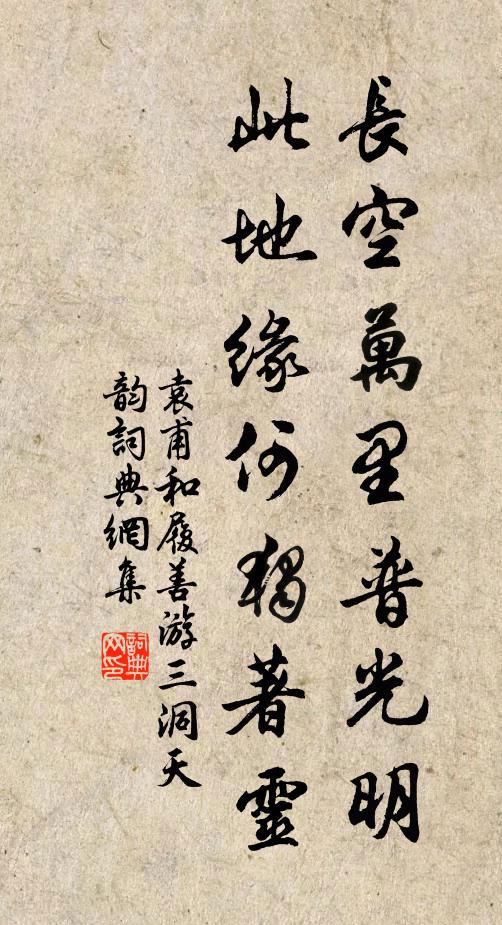 長空萬里普光明
此地緣何獨著靈
袁甫和履善游三洞天
韵詞典網集
詞典网印